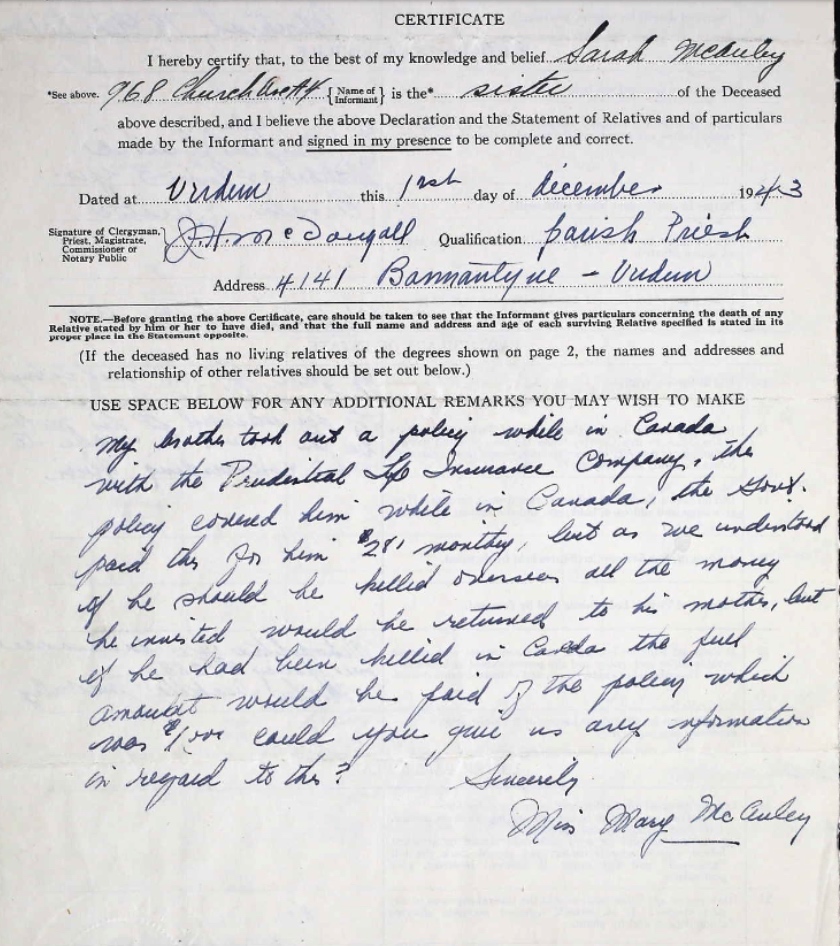 CERTIFICATE
I hereby certify that, to the best of my knowledge and belief Sarah McAuley
*See above. 968 Church Ave {Name of Informant} is the* sister of the Deceased
above described, and I believe the above Declaration and the Statement of Relatives and of particulars
made by the Informant and signed in my presence to be complete and correct.
Dated at Verdun this 1rst day of december 1943
Signature of Clergyman, Priest, Magistrate, Commissioner or Notary Public} J.H. McDougall Qualification parish Priest
Address 4141 Bannantyne - Verdun
NOTE.—Before granting the above Certificate, care should be taken to see that the Informant gives particulars concerning the death of any
Relative stated by him or her to have died, and that the full name and address and age of each surviving Relative specified is stated in its
proper place in the Statement opposite.
(If the deceased has no living relatives of the degrees shown on page 2, the names and addresses and
relationship of other relatives should be set out below.)
USE SPACE BELOW FOR ANY ADDITIONAL REMARKS YOU MAY WISH TO MAKE
My brother took out a policy while in Canada
with the Prudential Life Insurance Company, the
policy covered him while in Canada, the Govt.
paid this for him $2.81 monthy, but as we understood
if he should be killed overseas all the money
he invisted would be returned to his mother, but
if he had been killed in Canada the full
amount would be paid of the policy which
was $1,000 could you give us any information
in regard to this?
Sincerely
Miss Mary McAuley